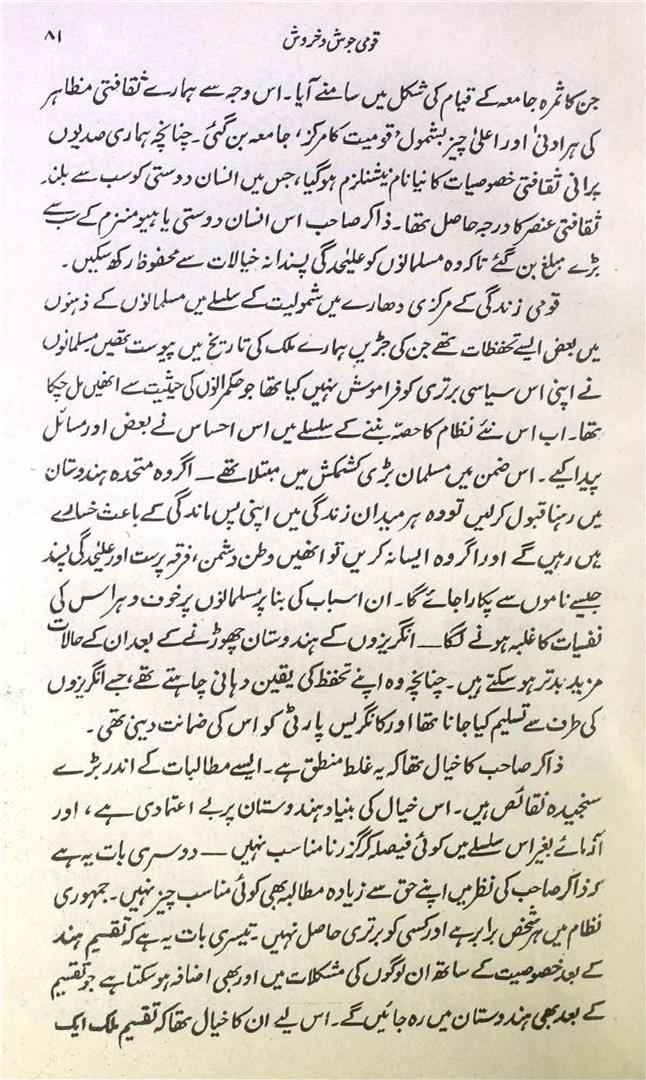 قومی جوش و خروش ۸۱
جن کا ثمرہ جامعہ کے قیام کی شکل میں سامنے آیا۔ اس وجہ سے ہمارے ثقافتی مظاہر
کی ہر ادنیٰ اور اعلیٰ چیز بشمول 'قومیت کا مرکز' جامعہ بن گئی۔ چنانچہ ہماری صدیوں
پرانی ثقافتی خصوصیات کا نیا نام نیشنلزم ہوگیا، جس میں انسان دوستی کو سب سے بلند
ثقافتی عنصر کا درجہ حاصل تھا۔ ذاکر صاحب اس انسان دوستی یا ہیومنزم کے سب سے
بڑے مبلغ بن گئے تاکہ وہ مسلمانوں کو علیٰحدگی پسندانہ خیالات سے محفوظ رکھ سکیں۔
قومی زندگی کے مرکزی دھارے میں شمولیت کے سلسلے میں مسلمانوں کے ذہنوں
میں بعض ایسے تحفظات تھے جن کی جڑیں ہمارے ملک کی تاریخ میں پیوست تھیں۔ مسلمانوں
نے اپنی اس سیاسی برتری کو فراموش نہیں کیا تھا جو حکمرانوں کی حیثیت سے انھیں مل چکا
تھا۔ اب اس نئے نظام کا حصّہ بننے کے سلسلے میں اس احساس نے بعض اور مسائل
پیدا کیے۔ اس ضمن میں مسلمان بڑی کشمکش میں مبتلا تھے — اگر وہ متحدہ ہندوستان
میں رہنا قبول کرلیں تو وہ ہر میدان زندگی میں اپنی پس ماندگی کے باعث خسارے
میں رہیں گے اور اگر وہ ایسا نہ کریں تو انھیں وطن دشمن، فرقہ پرست اور علیٰحدگی پسند
جیسے ناموں سے پکارا جائے گا۔ ان اسباب کی بنا پر مسلمانوں پر خوف و ہراس کی
نفسیات کا غلبہ ہونے لگا — انگریزوں کے ہندوستان چھوڑنے کے بعد ان کے حالات
مزید بدتر ہو سکتے ہیں۔ چنانچہ وہ اپنے تحفظ کی یقین دہانی چاہتے تھے، جسے انگریزوں
کی طرف سے تسلیم کیا جانا تھا اور کانگریس پارٹی کو اس کی ضمانت دینی تھی۔
ذاکر صاحب کا خیال تھا کہ یہ غلط منطق ہے۔ ایسے مطالبات کے اندر بڑے
سنجیدہ نقائص ہیں۔ اس خیال کی بنیاد ہندوستان پر بے اعتمادی ہے، اور
آزمائے بغیر اس سلسلے میں کوئی فیصلہ کر گزرنا مناسب نہیں — دوسری بات یہ ہے
کہ ذاکر صاحب کی نظر میں اپنے حق سے زیادہ مطالبہ بھی کوئی مناسب چیز نہیں۔ جمہوری
نظام میں ہر شخص برابر ہے اور کسی کو برتری حاصل نہیں۔ تیسری بات یہ ہے کہ تقسیم ہند
کے بعد خصوصیت کے ساتھ ان لوگوں کی مشکلات میں اور بھی اضافہ ہو سکتا ہے جو تقسیم
کے بعد بھی ہندوستان میں رہ جائیں گے۔ اس لیے ان کا خیال تھا کہ تقسیم ملک ایک